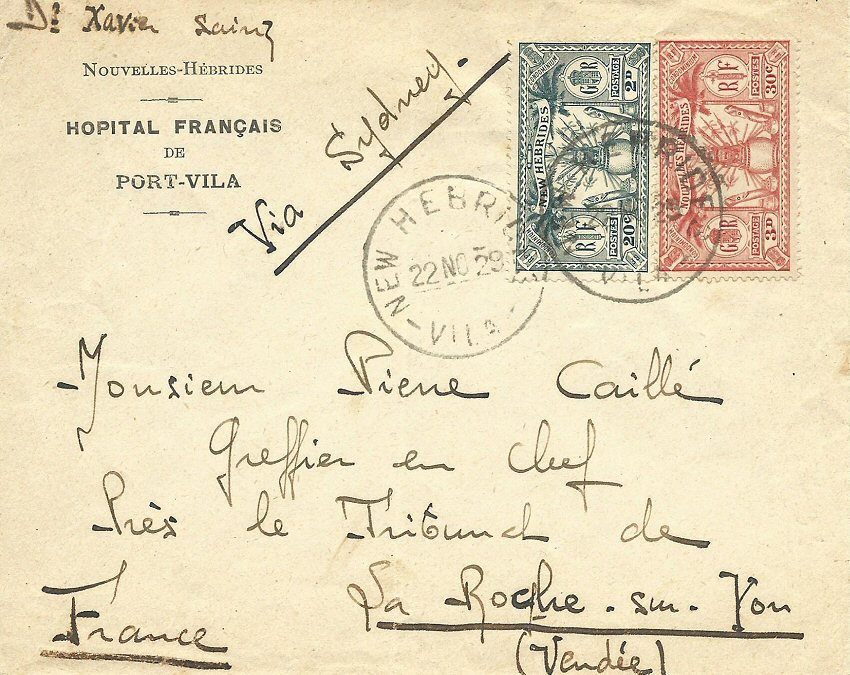 Dr Xavier Sainz
NOUVELLES-HÉBRIDES
HOPITAL FRANÇAIS
DE
PORT-VILA
Via Sydney.
NEW HEBRIDES
G R
POSTAGE 2D
R F
POSTES 20c
NOUVELLES HEBRIDES
R F
POSTES 30c
G R
POSTAGE 3D
NEW HEBRI
22 NO 29
VILA
HEBRIDE
VILA
Monsieur Pierre Caillé
Greffier en chef
Près le Tribunal de
La Roche-sur-Yon
(Vendée)
France